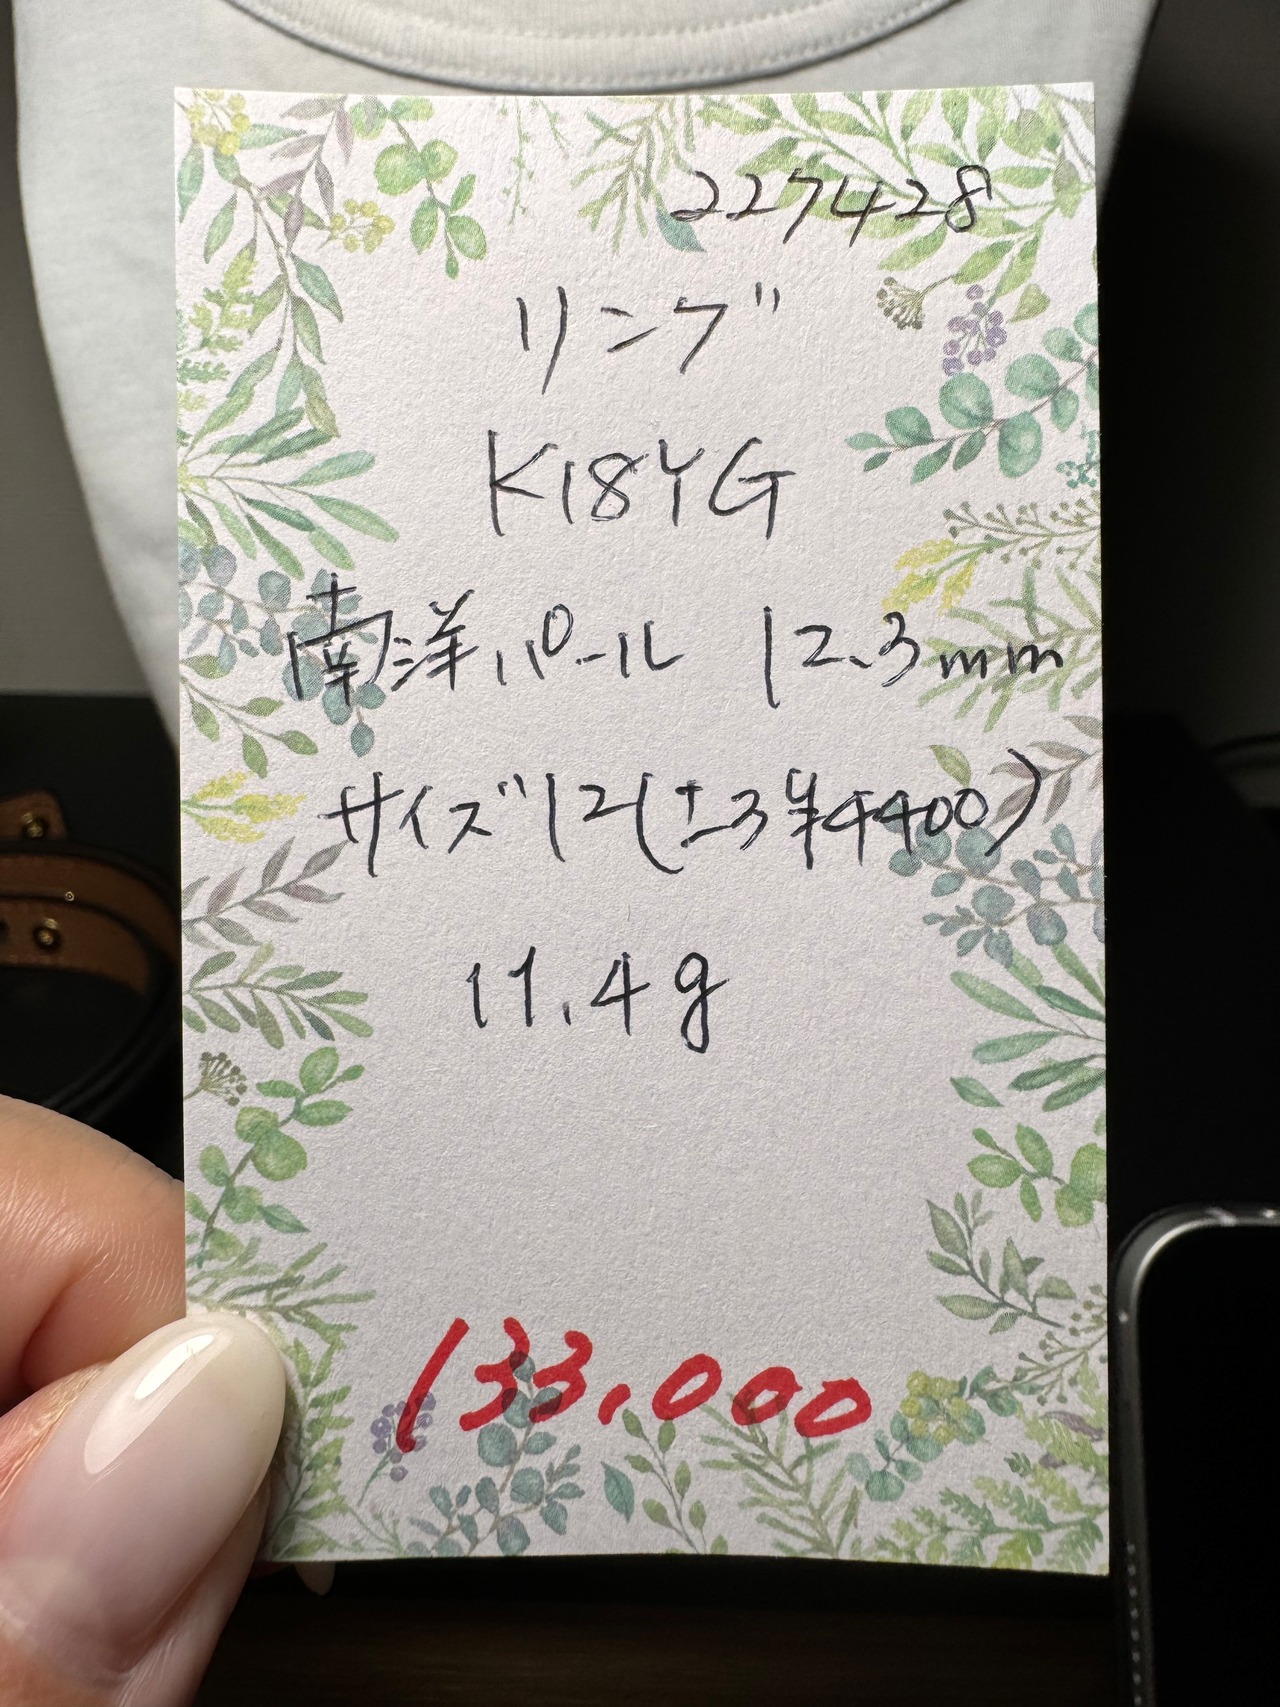 227428
リング
K18YG
南洋パール 12.3mm
サイズ12(±3¥4400)
11.4g
133,000